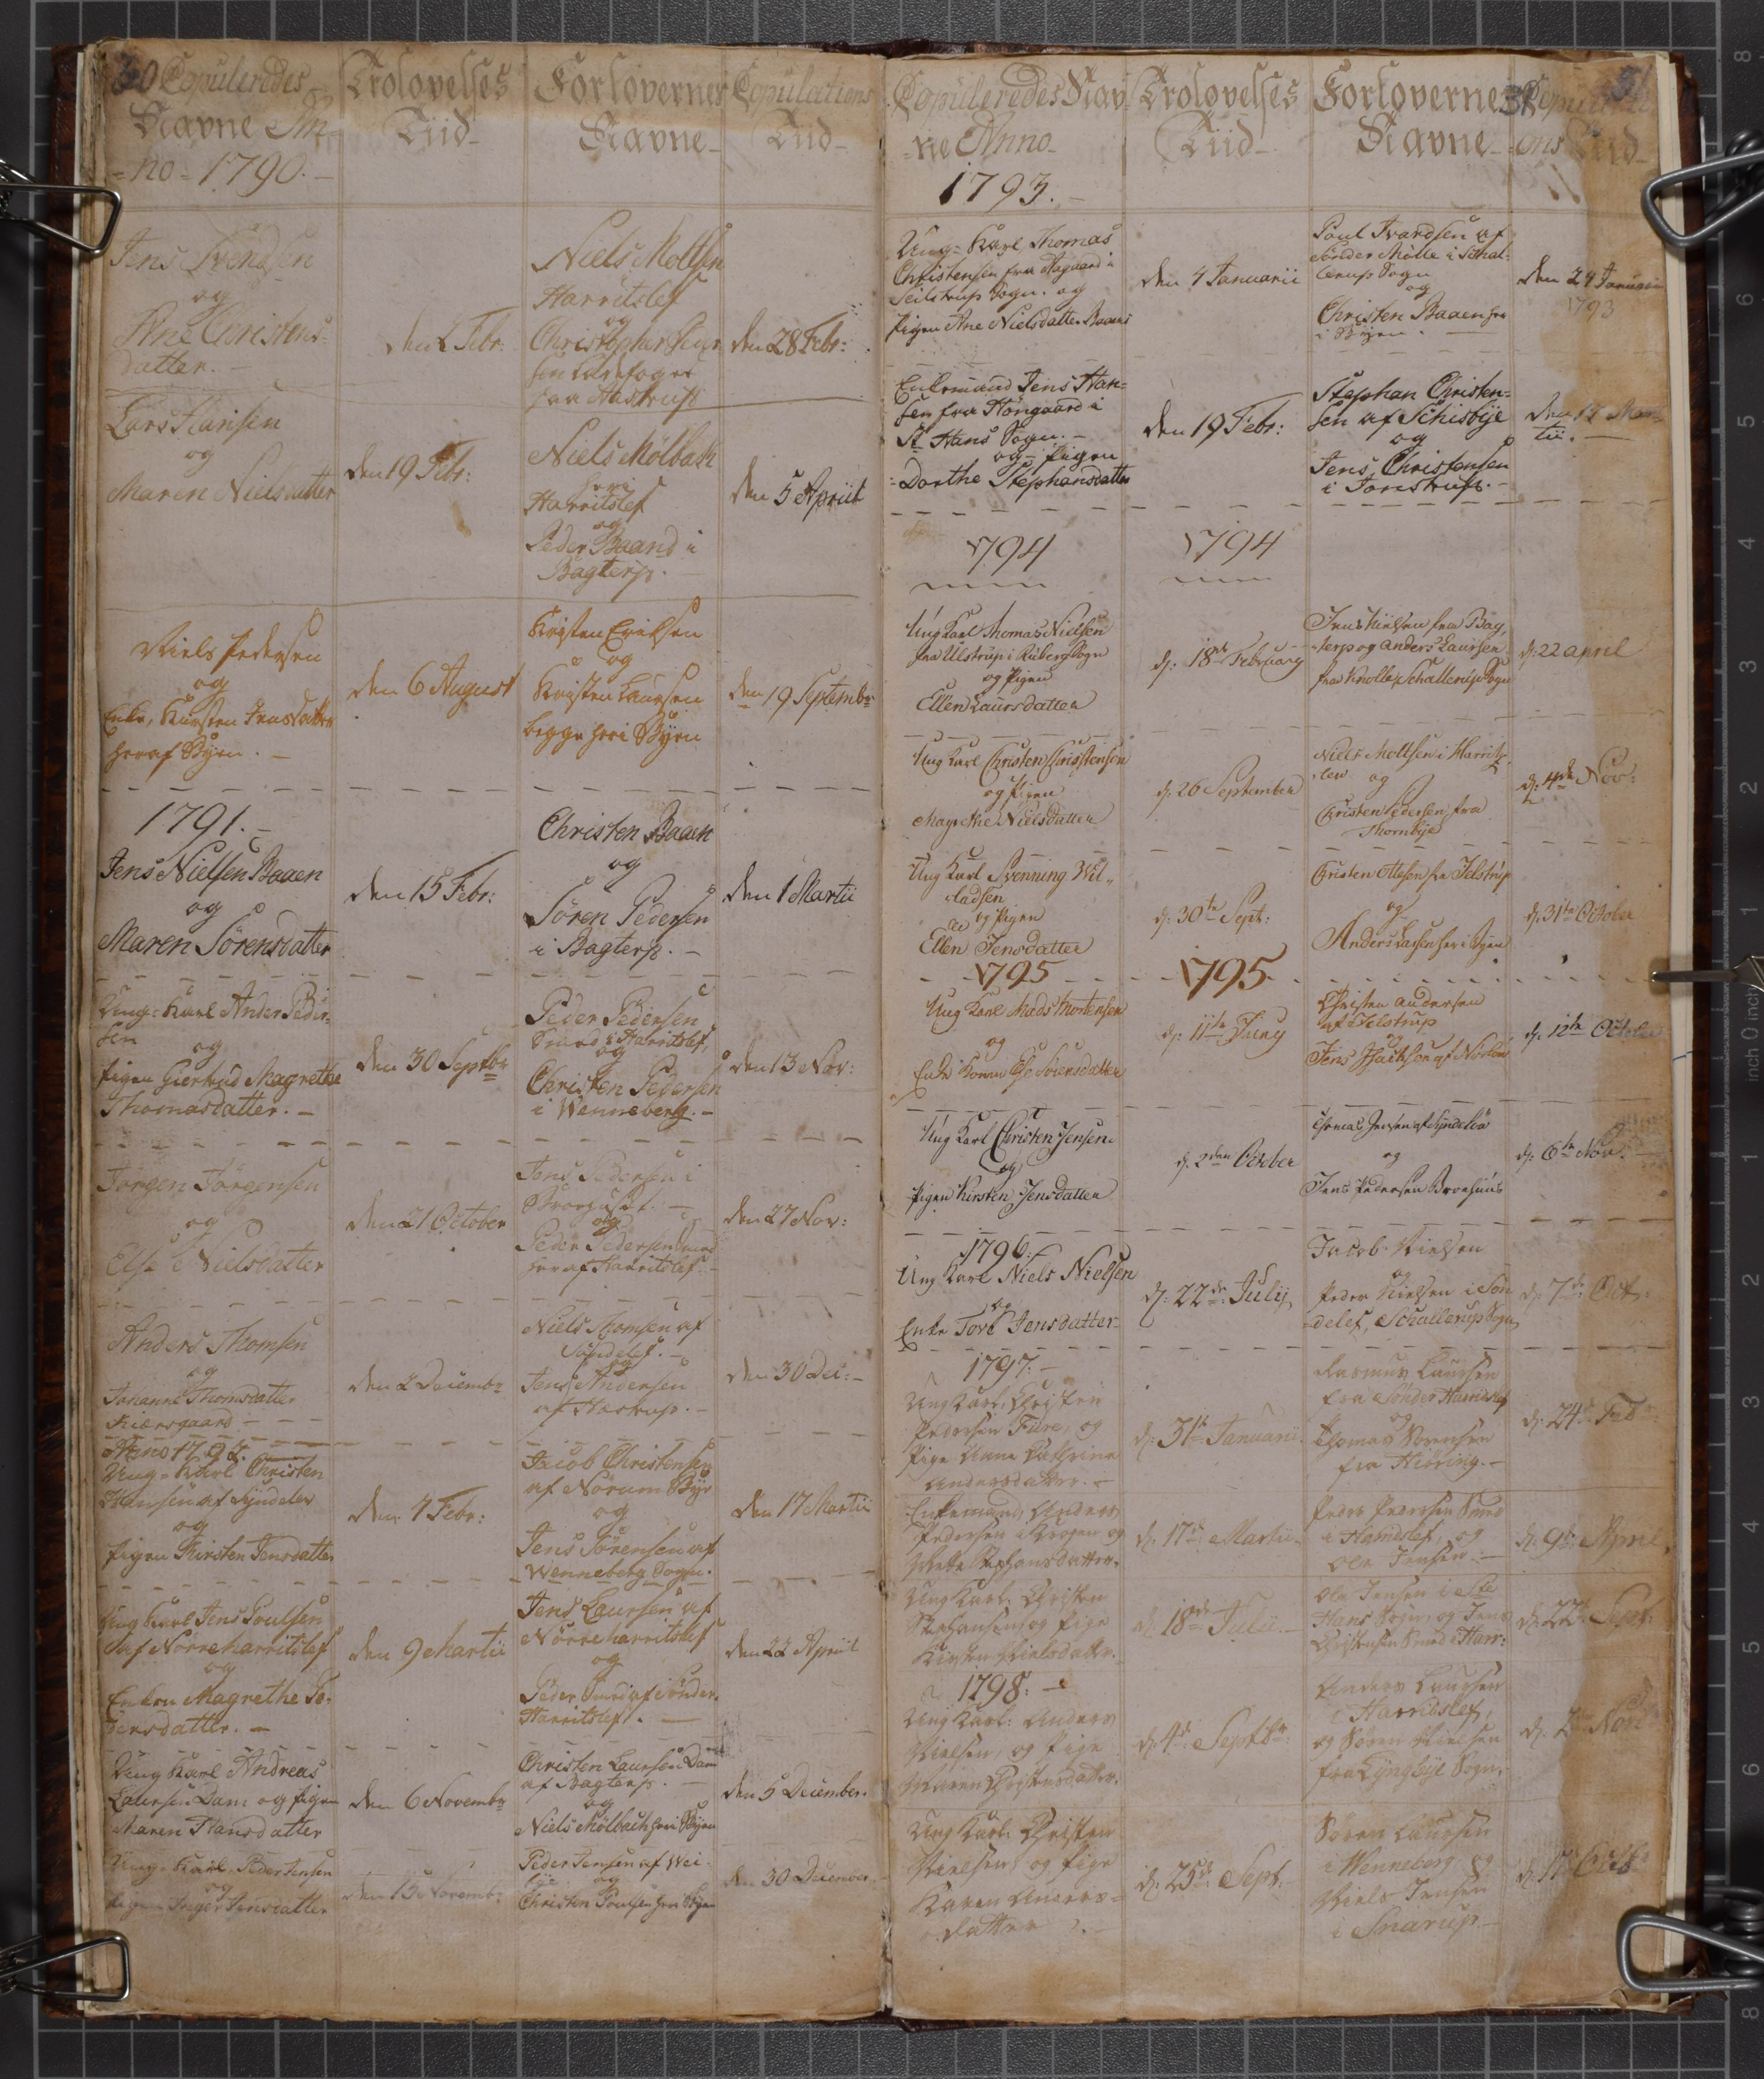 30 Copuleredes
Navne An=
=no=1790.-
Trolovelses
Tiid-
Forlovernes
Navne-
Copulations
Tiid-
Jens Svendsen
og
Ane Christens=
datter.-
den 2 Febr:
Niels Moltsen
Harritslef
og
Christopher
fra Hastrup
den 28 Febr:
Lars Hansen
og
Maren Nielsdatter
den 19 Febr:
Niels Mølbach
her i
Harritslef
og
Peder Baand i
Bagterp.-
den 5 Apriil
Niels Pedersen
og
Enke, Kirsten Jensdatter
her af Byen.-
den 6 August
Kristen Erichsen
og
Kristen Laursen
begge her i Byen
den 19 Septembr
1791.-
Jens Nielsen Baaen
og
Maren Sørensdatter
den 15 Febr:
Christen Baaen
og
Søren Pedersen
i Bagterp.-
den 1 Martii
Ung=Karl Ander Peder=
sen
og
Pigen Giertrud Magrethe
Thomasdatter.-
den 30 Septbr
Peder Pedersen
Smed i Harritslef,
og
Christen Pedersen
i Wenneberg.-
den 13 Nov:
Jørgen Jørgensen
og
Else Nielsdatter
den 21 October
Jens Pedersen i
og
Peder Pedersen Smed
her af Harritslef.-
den 27 Nov:
Anders Thomsen
og
Johanne Thomsdatter
Kiærsgaard - - -
den 2 Decembr
Niels Thomsen af
Søndelef.-
og
Jens Andersen
af Hastrup.-
den 30 Dec:-
Anno 1792.
Ung=Karl Christen
Hansen af Syndelev
og
Pigen Kirsten Jensdatter
den 4 Febr:
Jacob Christensen
af Nørum Bye
og
Jens Sørensen af
Wenneberg Sogn.
den 17 Martii
Ung Karl Jens Poulsen
af Nørreharritslef
og
Enken Magrethe Pe=
dersdatter.-
den 9 Martii
Jens Laursen af
Nørreharritslef
og
Peder Smed af Sønder
Harritslef.-
den 22 Apriil
Ung Karl Andreas
Laursen Dam og Pigen
Maren Hansdatter
den 6 Novembr
Christen Laursen Dam
af Bagterp.-
og
Niels Mølbach her i Byen
den 5 December.
Ung=Karl Peder Jensen
og
Pigen Inger Jensdatter
den 15 Novembr:
Peder Jensen af Wei
bye og
Christen Poulsen her i Byen
den 30 December.
Copuleredes Nav
=ne Anno
1793.-
Trolovelses
Tiid-
Forlovernes
Navne-
31
Copulati
ons Tiid-
Ung=Karl Thomas
Christensen fra Aagaard i
Seilstrup Sogn. og
Pigen Ane Nielsdatter Baaens
den 4 Januarii
Poul Ivardsen af
Sønder Mølle i Schal=
lerup Sogn
og
Christen Baaen her
i Byen.
den 24 Januari
1793
Enkemand Jens Han=
sen fra Høngaard i
St Hans Sogn.-
og Pigen
Dorthe Stephansdatter
den 19 Febr:
Stephan Christen=
sen af Schisbye
og
Jens Christensen
i Tornstrup.-
den Mar=
tii.-
1794
1794
Ung Karl Thomas Nielsen
fra Ulstrup i Ruberg Sogn
og Pigen
Ellen Laursdatter
d: 18de February
Jens Nielsen fra Bag,
terp og Anders Laursen
fra Knolle, Schallerup Sogn
d: 22 april
Ung Karl Christen Christensen
og Pigen
Magrethe Nielsdatter
d: 26 September
Niels Moltsen i Harrits
lew og
Christen Pedersen fra
Thornbye
d: 4de Nov:
Ung Karl Svenning Wil,,
ladsen
og Pigen
Ellen Jensdatter
d: 30te Sept:
Christen Ottesen fra Jelstrup
og
Anders Larsen her i Byen
d: 31te October
1795
1795
Ung Karl Mads Mortensen
og
Enke Konen Else Sørensdatter
d: 11te Juny
Christen andersen
af Jelstrup
og
Jens Isachsen af Norlin
d: 12te October
Ung Karl Christen Jensen
og
Pigen Kirsten Jensdatter
d. 2den October
Thomas Jensen af Syndelev
og
Jens Pedersen Broehuus
d: 6te Nov.
1796.
Ung Karl Niels Nielsen
og
Enke Tove Jensdatter
d: 22de Julij
Jacob Nielsen
og
Peder Nielsen i Søn
delef, Schallerup Sogn
d: 7de Oct.
1797.-
Ung Karl, Christen
Pedersen Fure, og
Pige Anne Cathrine
Andersdatter.-
d: 31te Januarii
Rasmus Laursen
fra Sønder Harritslef
og
Thomas Sørensen
fra Hiørring.-
d: 24de Feb
Enkemand, Anders
Pedersen i Krogen og
Mette Stephansdatter.
d: 17de Martii
Peder Pedersen Smed
i Harridslef, og
Ole Jensen.-
d: 9de April.
Ung Karl, Christen
Stephansen og Pige
Kirsten Nielsdatter.
d: 18de Julii.-
Ole Jensen i Ste
Hans Sogn, og Jens
Christensen Smed i Harr:
d: 22de Sept.
1798.-
Ung Karl: Anders
Nielsen, og Pige
Maren Christensdatter.
d: 4de Septbr:
Anders Laursen
i Harridslef,
og Søren Nielsen
fra Lyngbye Sogn.
d: 2de Nov
Ung Karl, Christen
Nielsen, og Pige
Karen Anders=
datter.-
d: 25de Sept.
Søren Laursen
i Wenneberg, og
Niels Jensen
i Snarup.-
d: 17de Octb